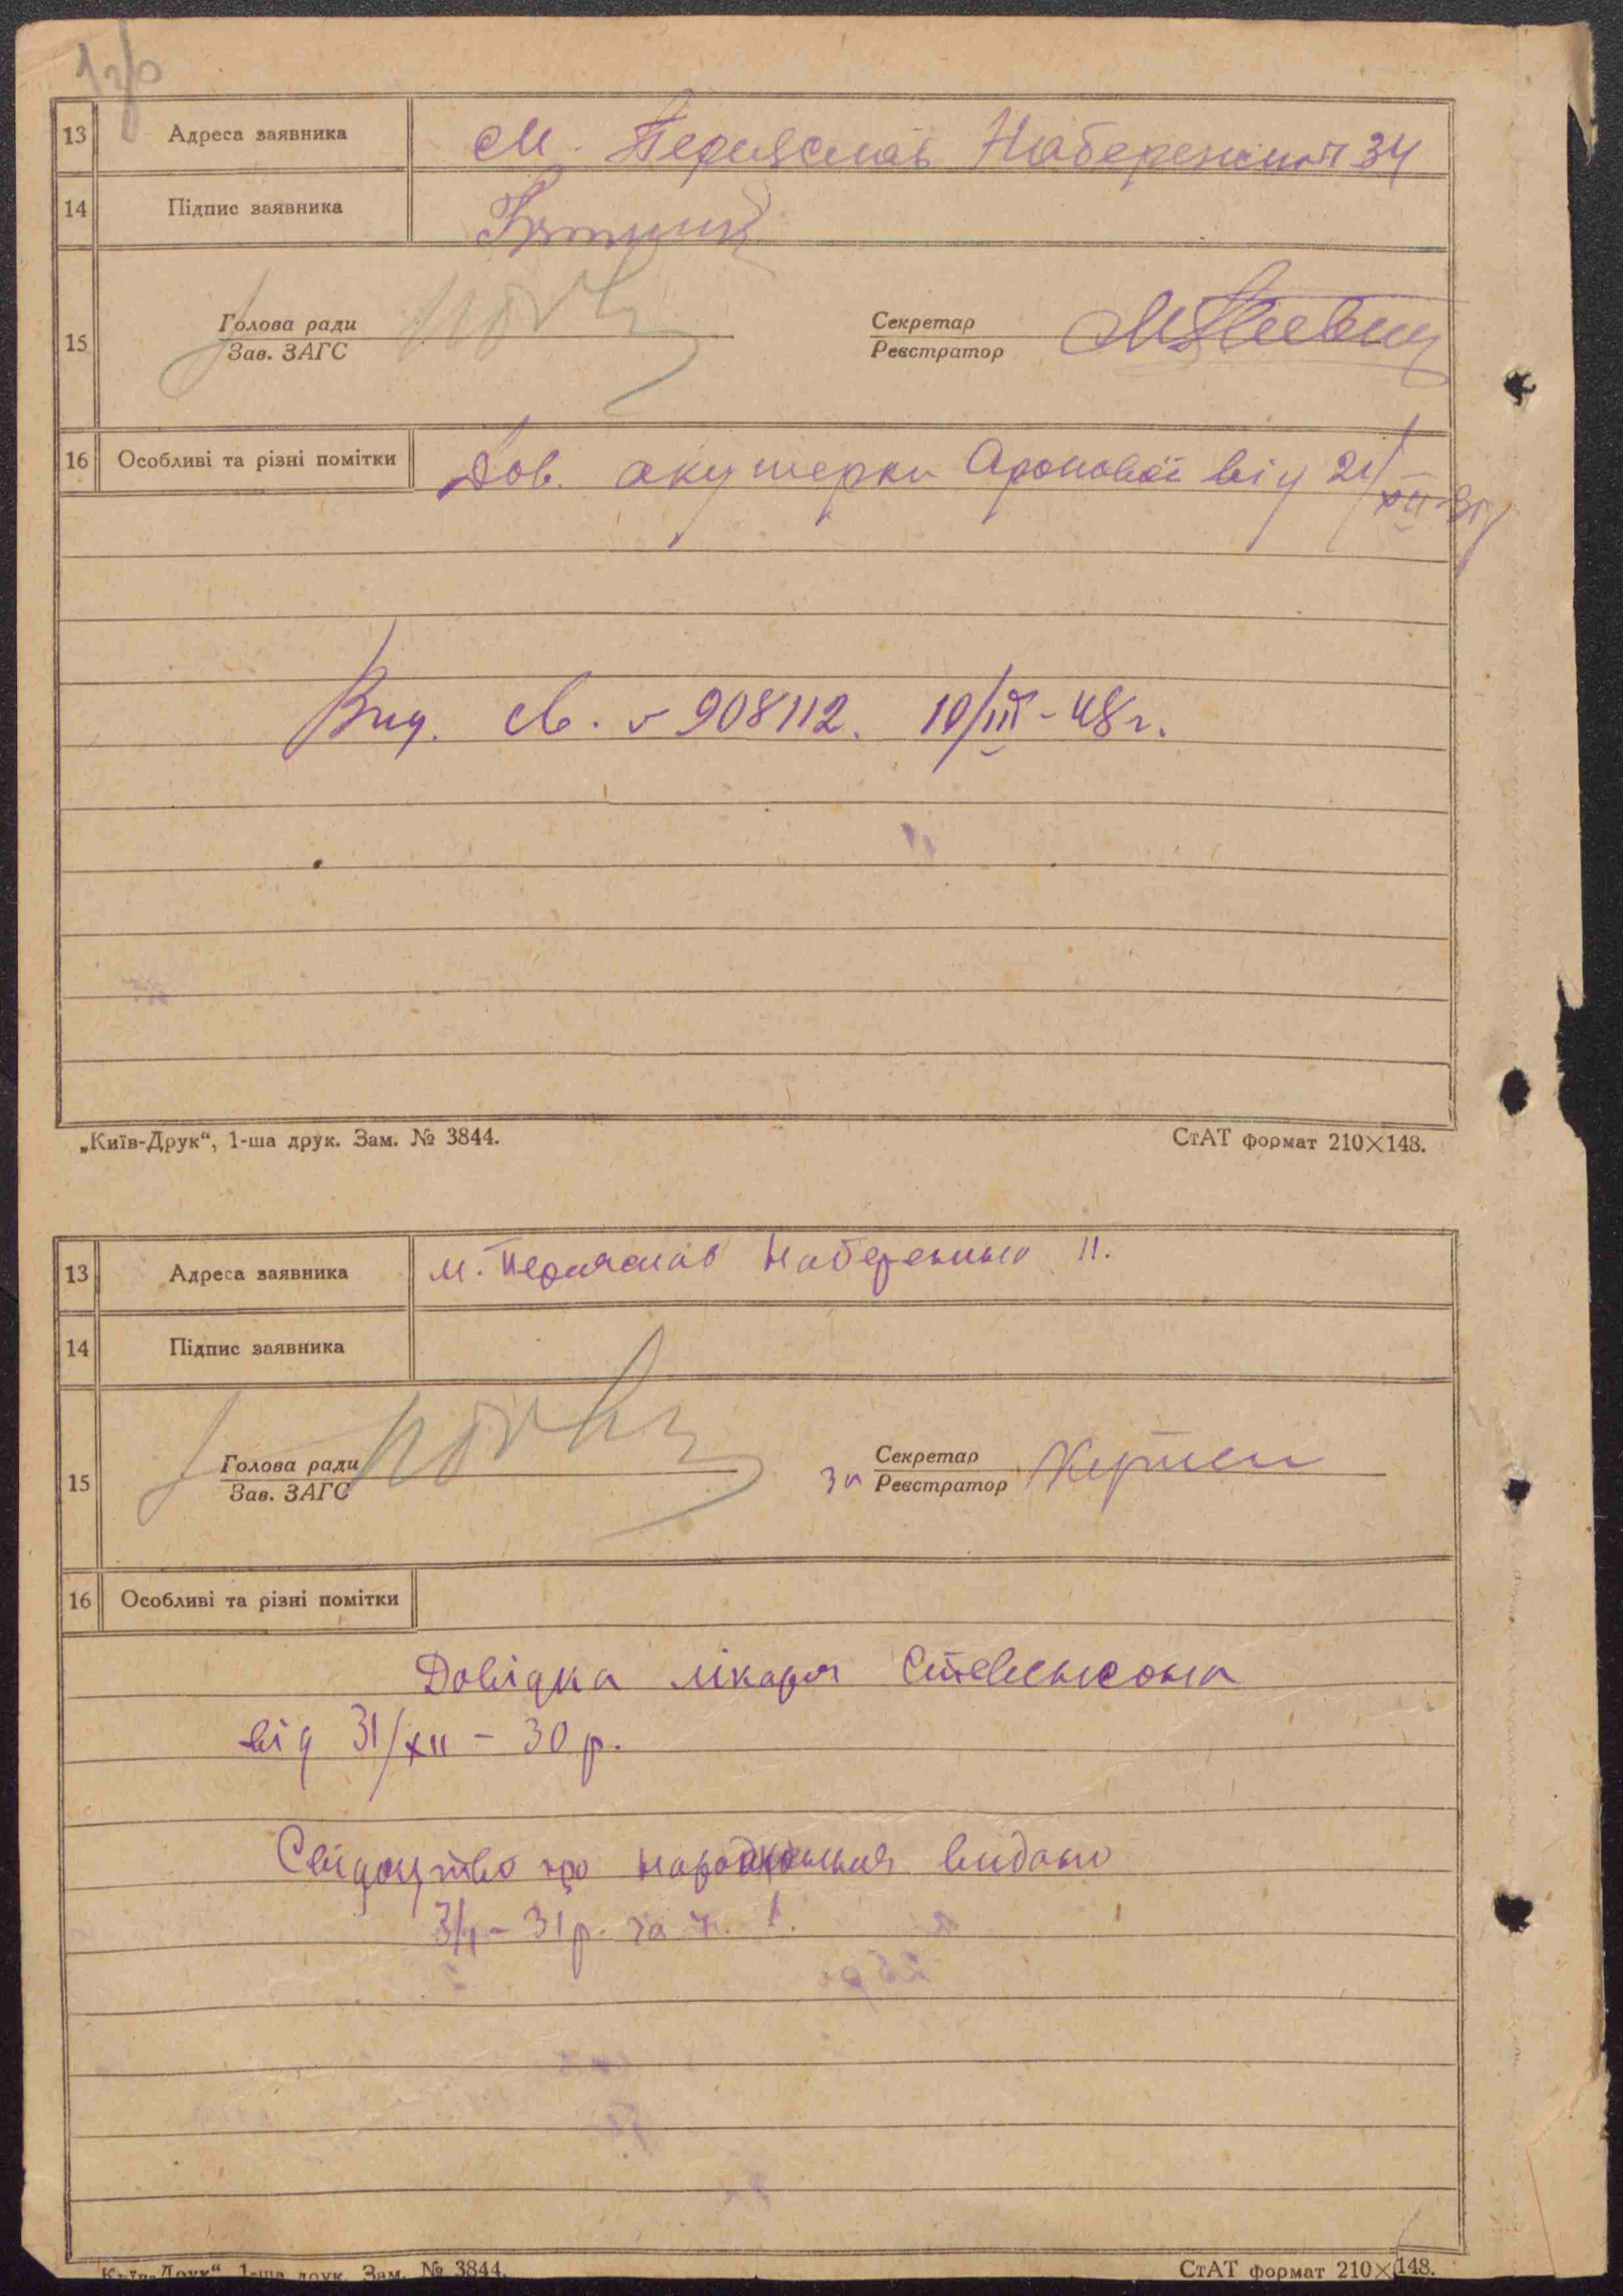 13 Адреса заявника м. Переяслав Набережная 34
14 Підпис заявника
15 Голова ради Секретар
Зав. ЗАГС Реєстратор
16 Особливі та різні помітки Дов. акушерки Аронової від 21/XII
Вид. св. 908112. 10/III-48 г.
„Київ-Друк“, 1-ша друк. Зам. № 3844. СтАТ формат 210×148.
13 Адреса заявника м. Переяслав Набережна 11.
14 Підпис заявника
15 Голова ради за Секретар
Зав. ЗАГС Реєстратор
16 Особливі та різні помітки
Довідка лікаря
від 31/XII - 30 р.
Свідоцтво про народження видано
3/I - 31 р. за ч. 1.
Київ-Друк“, 1-ша друк. Зам. № 3844. СтАТ формат 210×148.